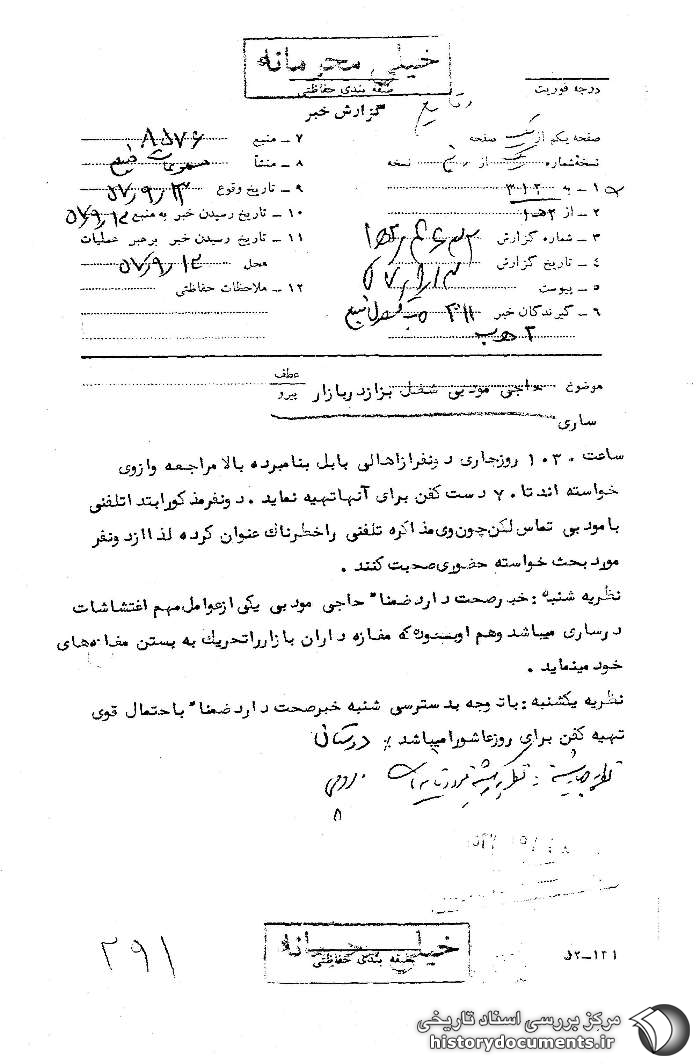 خیلی محرمانه
طبقه بندی حفاظتی
درجه فوریت
گزارش خبر
صفحه یکم از یک صفحه
نسخه شماره از نسخه
۱ ـ به ۳۱۲
۲ ـ از
۳ ـ شماره گزارش
۴ ـ تاریخ گزارش
۵ ـ پیوست
۶ ـ گیرندگان خبر
۷ ـ منبع ۸۵۷۶
۸ ـ منشأ
۹ ـ تاریخ وقوع ۵۷/۹/۱۳
۱۰ ـ تاریخ رسیدن خبر به منبع ۵۷/۹/۱۳
۱۱ ـ تاریخ رسیدن خبر برهبر عملیات
محل ۵۷/۹/۱۳
۱۲ ـ ملاحظات حفاظتی
عطف
پیرو
موضوع حاجی مودبی شغل بزاز در بازار
ساری
ساعت ۱۰۳۰ روز جاری دونفر از اهالی بابل بنامبرده بالا مراجعه و از وی
خواسته اند تا ۷۰ دست کفن برای آنها تهیه نماید . دونفر مذکور ابتدا تلفنی
با مودبی تماس لکن چون وی مذاکره تلفنی را خطرناک عنوان کرده لذا از دونفر
مورد بحث خواسته حضوری صحبت کنند .
نظریه شنبه : خبر صحت دارد ضمنا" حاجی مودبی یکی از عوامل مهم اغتشاشات
در ساری میباشد و هم او بوده که مغازه داران بازار را تحریک به بستن مغازه های
خود مینماید .
نظریه یکشنبه : با توجه بدسترسی شنبه خبر صحت دارد ضمنا" با احتمال قوی
تهیه کفن برای روز عاشورا میباشد ٪
۲۹۱
خیلی محرمانه
طبقه بندی حفاظتی
۱۲۱ـ۲
مرکز بررسی اسناد تاریخی
historydocuments.ir